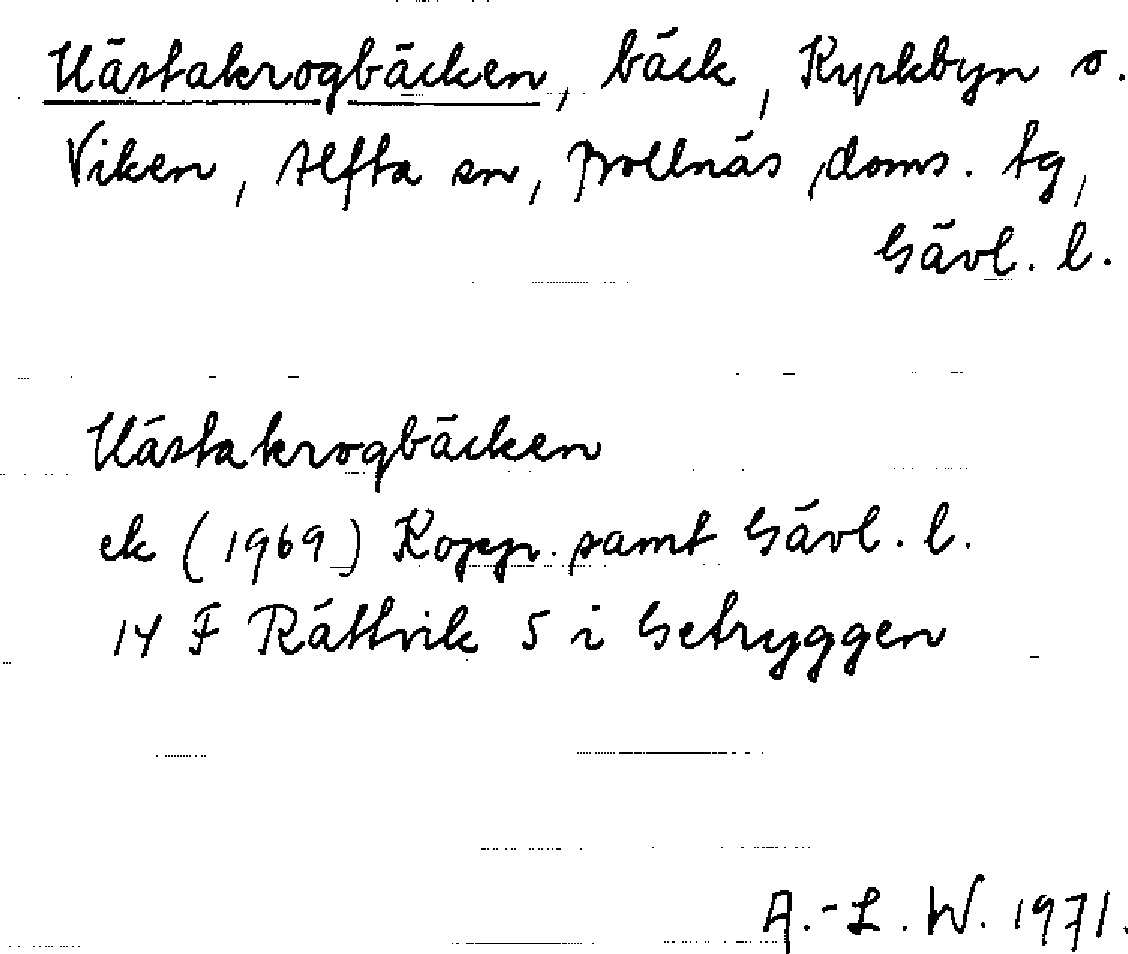 Hästakrogbäcken, bäck, Kyrkbyn o.
Viken, Alfta sn, Bollnäs doms. tg,
Gävl. l.
Hästakrogbäcken
ek (1969) Kopp. samt Gävl. l.
14 F Rättvik 5 i Getryggen
A.-L. W. 1971.